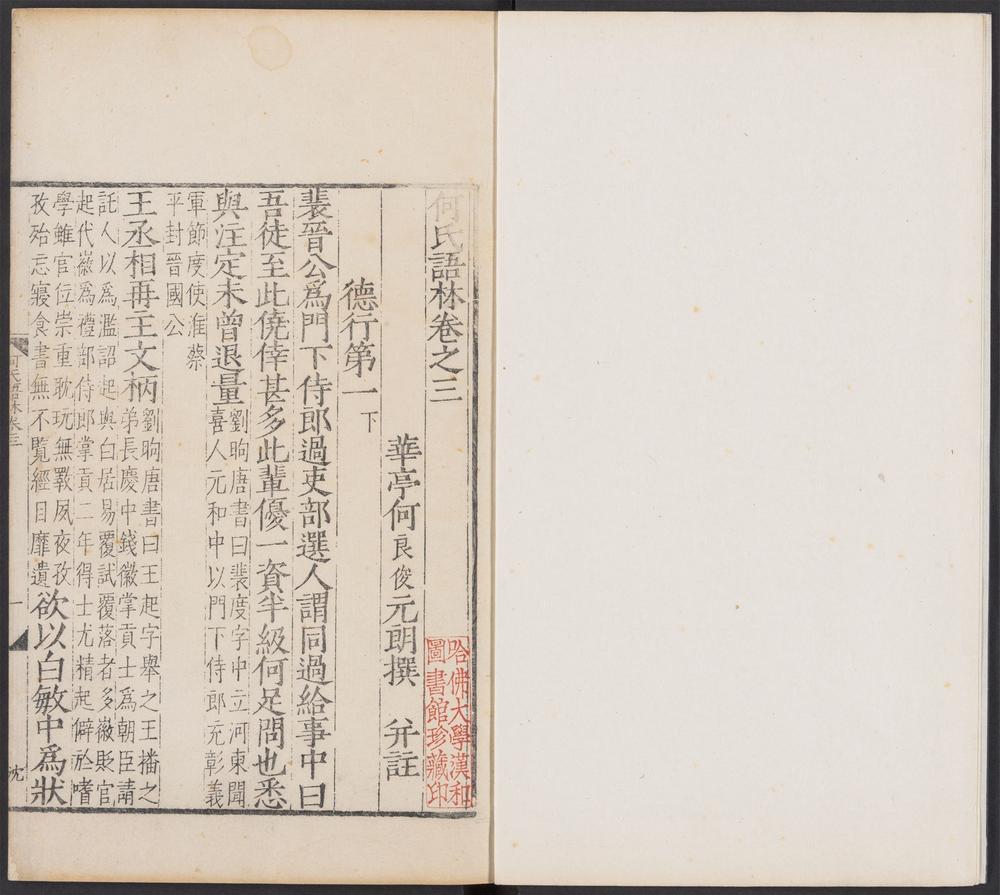 何氏語林卷之三
哈佛大學漢和
圖書館珍藏印
華亭何良俊元朗撰　幷註
德行第一下
裴晉公爲門下侍郎過吏部選人謂同過給事中曰
吾徒至此僥倖甚多此輩優一資半級何足問也悉
與注定未曾退量
劉昫唐書曰裴度字中立河東聞
喜人元和中以門下侍郎充彰義
軍節度使淮蔡
平封晉國公
王丞相再主文柄
劉昫唐書曰王起字舉之王播之
弟長慶中錢徽掌貢士爲朝臣請
託人以爲濫詔起與白居易覆試覆落者多徽貶官
起代徽爲禮部侍郎掌貢二年得士尤精起僻於嗜
學雖官位崇重耽玩無斁夙夜孜
孜殆忘寢食書無不覧經目靡遺
欲以白敏中爲狀
何氏語林卷三
一
沈